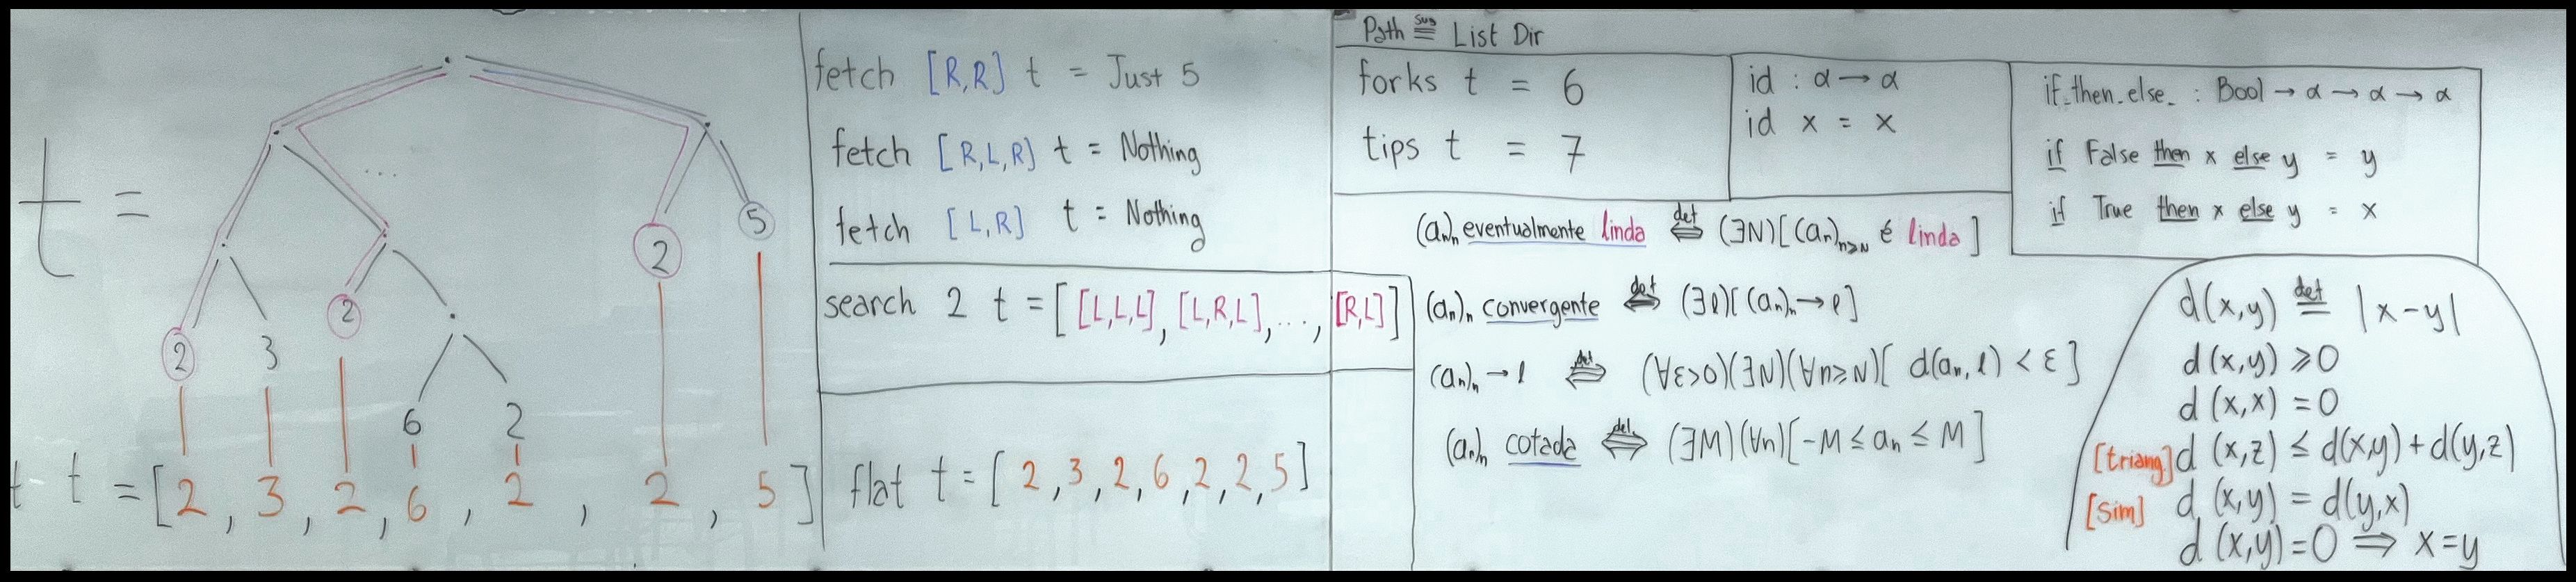 t =
...
2
5
2
2
3
6 2
t t = [2, 3, 2, 6, 2, 2, 5]
fetch [R,R] t = Just 5
fetch [R,L,R] t = Nothing
fetch [L,R] t = Nothing
search 2 t = [[L,L,L], [L,R,L], ..., [R,L]]
flat t = [2,3,2,6,2,2,5]
Path ≡ List Dir
forks t = 6
tips t = 7
id : α → α
id x = x
if_then_else_ : Bool → α → α → α
if False then x else y = y
if True then x else y = x
(aₙ)ₙ eventualmente linda ⇔def (∃N)[(aₙ)ₙ≥N é linda]
(aₙ)ₙ convergente ⇔def (∃ℓ)[(aₙ)ₙ → ℓ]
(aₙ)ₙ → ℓ ⇔def (∀ε>0)(∃N)(∀n≥N)[d(aₙ, ℓ) < ε]
(aₙ)ₙ cotada ⇔def (∃M)(∀n)[-M ≤ aₙ ≤ M]
d(x,y) =def |x-y|
d(x,y) ⩾ 0
d(x,x) = 0
[triang] d(x,z) ≤ d(x,y) + d(y,z)
[sim] d(x,y) = d(y,x)
d(x,y) = 0 ⟹ x = y